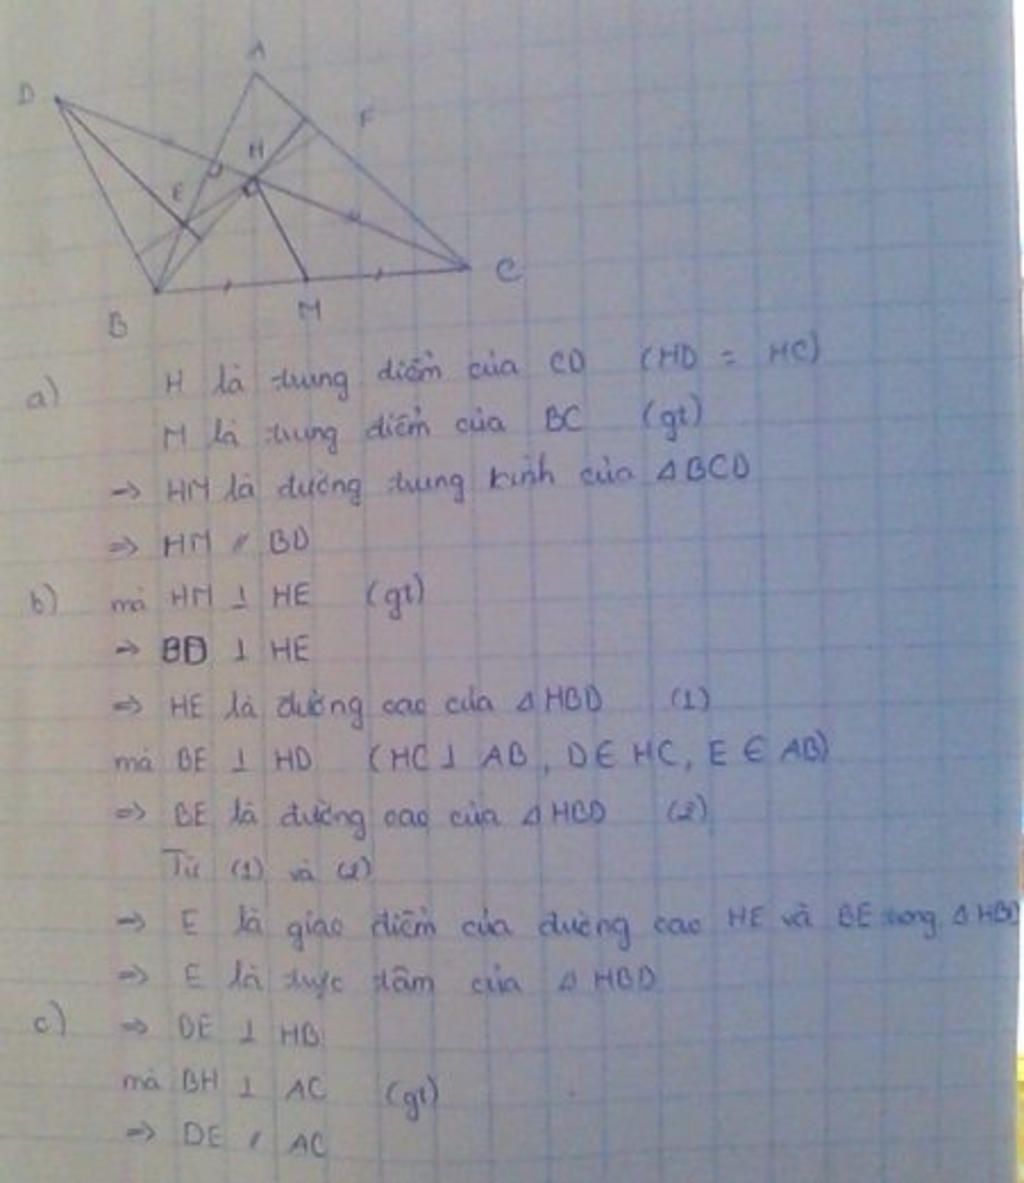 A
D
F
H
E
C
B
M
a) H là trung điểm của CD (HD = HC)
M là trung điểm của BC (gt)
=> HM là đường trung bình của ΔBCD
=> HM // BD
b) mà HM ⊥ HE (gt)
=> BD ⊥ HE
=> HE là đường cao của ΔHBD (1)
mà BE ⊥ HD (HC ⊥ AB, D ∈ HC, E ∈ AB)
=> BE là đường cao của ΔHBD (2)
Từ (1) và (2)
=> E là giao điểm của đường cao HE và BE trong ΔHBD
=> E là trực tâm của ΔHBD
c) => DE ⊥ HB
mà BH ⊥ AC (gt)
=> DE // AC